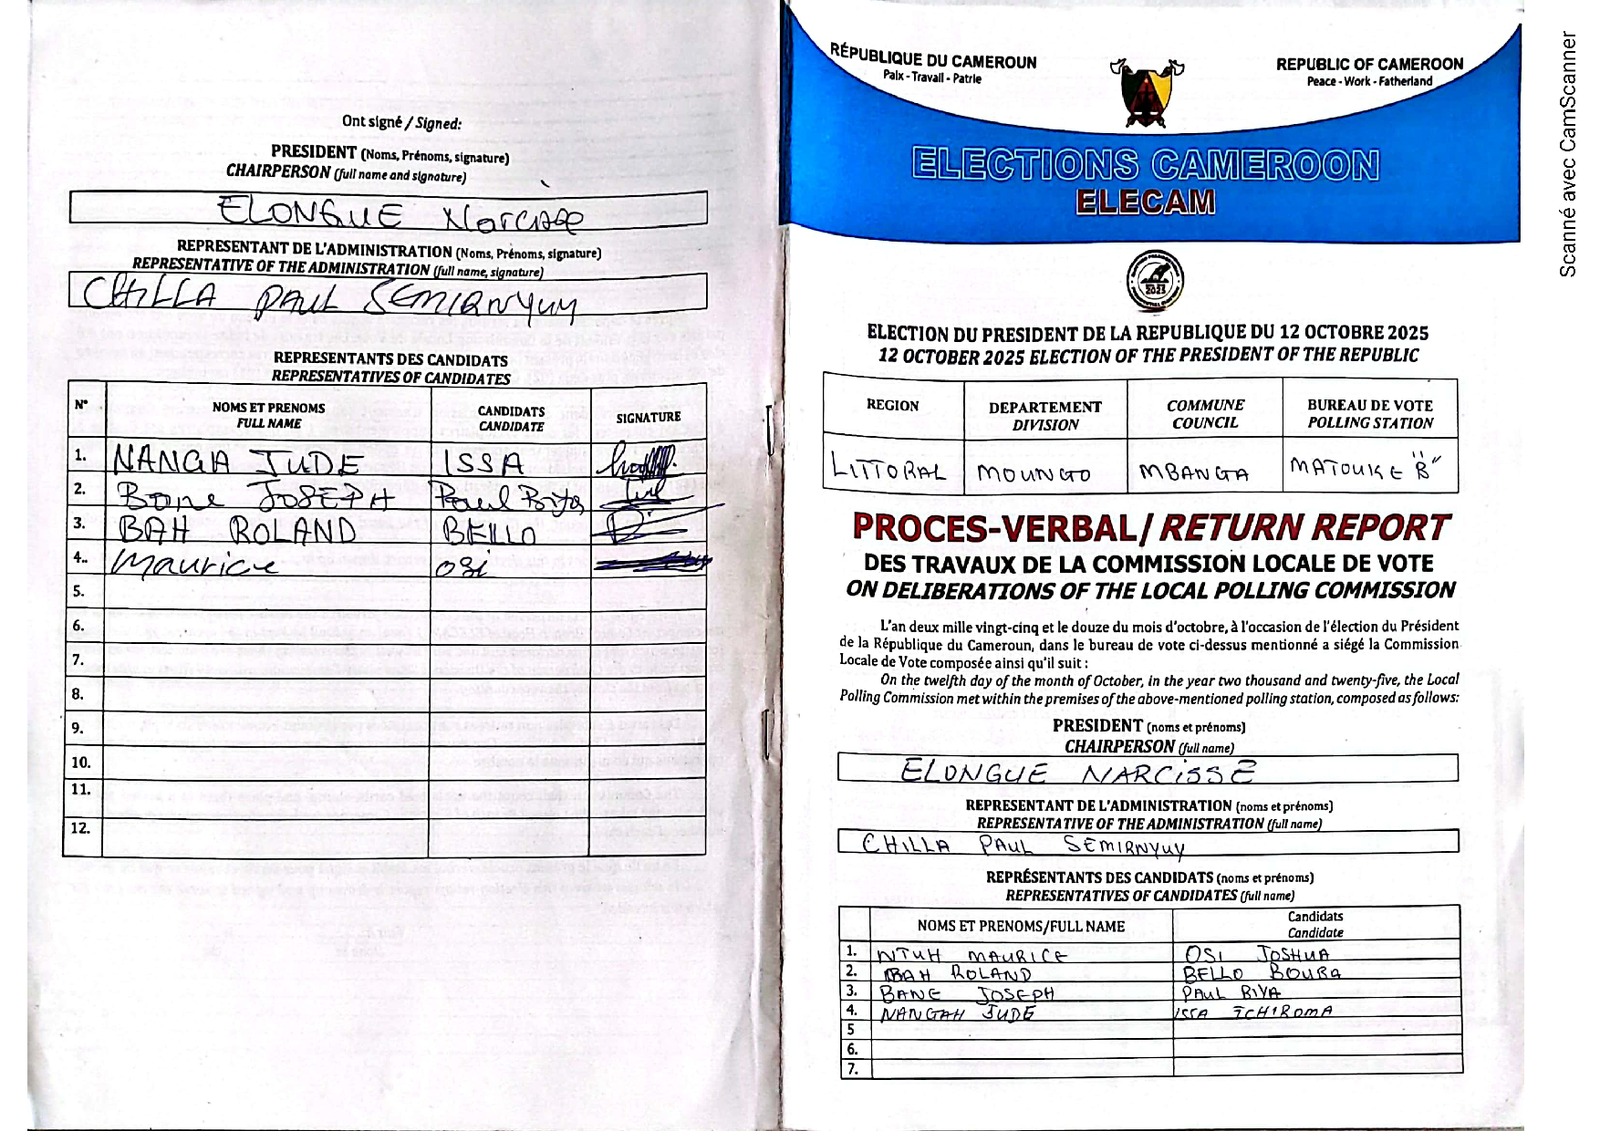 Ont signé / Signed:
PRESIDENT (Noms, Prénoms, signature)
CHAIRPERSON (full name and signature)
ELONGUE Narcisse
REPRESENTANT DE L'ADMINISTRATION (Noms, Prénoms, signature)
REPRESENTATIVE OF THE ADMINISTRATION (full name, signature)
CHILLA PAUL SEMIRNYUY
REPRESENTANTS DES CANDIDATS
REPRESENTATIVES OF CANDIDATES
N° NOMS ET PRENOMS FULL NAME CANDIDATS CANDIDATE SIGNATURE
1. NANGIA JUDE ISSA
2. Bone JOSEPH Paul Biya
3. BAH ROLAND BELLO
4.. Maurice osi
5.
6.
7.
8.
9.
10.
11.
12.
RÉPUBLIQUE DU CAMEROUN
Paix - Travail - Patrie
REPUBLIC OF CAMEROON
Peace - Work - Fatherland
ELECTIONS CAMEROON
ELECAM
2025
ELECTION DU PRESIDENT DE LA REPUBLIQUE DU 12 OCTOBRE 2025
12 OCTOBER 2025 ELECTION OF THE PRESIDENT OF THE REPUBLIC
REGION DEPARTEMENT DIVISION COMMUNE COUNCIL BUREAU DE VOTE POLLING STATION
LITTORAL MOUNGO MBANGA MATOUKE "B"
PROCES-VERBAL/ RETURN REPORT
DES TRAVAUX DE LA COMMISSION LOCALE DE VOTE
ON DELIBERATIONS OF THE LOCAL POLLING COMMISSION
L'an deux mille vingt-cinq et le douze du mois d'octobre, à l'occasion de l'élection du Président
de la République du Cameroun, dans le bureau de vote ci-dessus mentionné a siégé la Commission
Locale de Vote composée ainsi qu'il suit :
On the twelfth day of the month of October, in the year two thousand and twenty-five, the Local
Polling Commission met within the premises of the above-mentioned polling station, composed as follows:
PRESIDENT (noms et prénoms)
CHAIRPERSON (full name)
ELONGUE NARCISSE
REPRESENTANT DE L'ADMINISTRATION (noms et prénoms)
REPRESENTATIVE OF THE ADMINISTRATION (full name)
CHILLA PAUL SEMIRNYUY
REPRÉSENTANTS DES CANDIDATS (noms et prénoms)
REPRESENTATIVES OF CANDIDATES (full name)
NOMS ET PRENOMS/FULL NAME Candidats Candidate
1. NTUH MAURICE OSI JOSHUA
2. BAH ROLAND BELLO BOUBA
3. BANE JOSEPH PAUL BIYA
4. NANGAH JUDE ISSA TCHIROMA
5
6.
7.
Scanné avec CamScanner